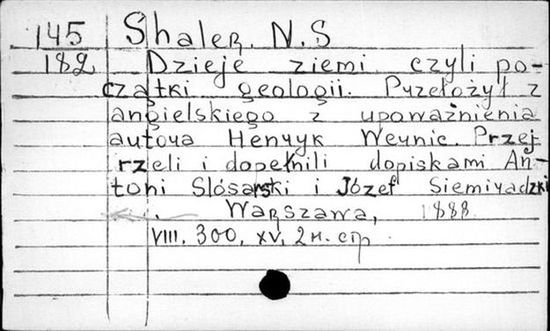 145 Shaler, N.S
182 Dzieje ziemi czyli po-
czątki geologii. Przełożył z
angielskiego z upoważnienia
autora Henryk Wernic. Przej-
rzeli i dopełnili dopiskami An-
toni Ślósarski i Józef Siemiradzki
Warszawa, 1888
VIII, 300, XV, 2 н. стр.